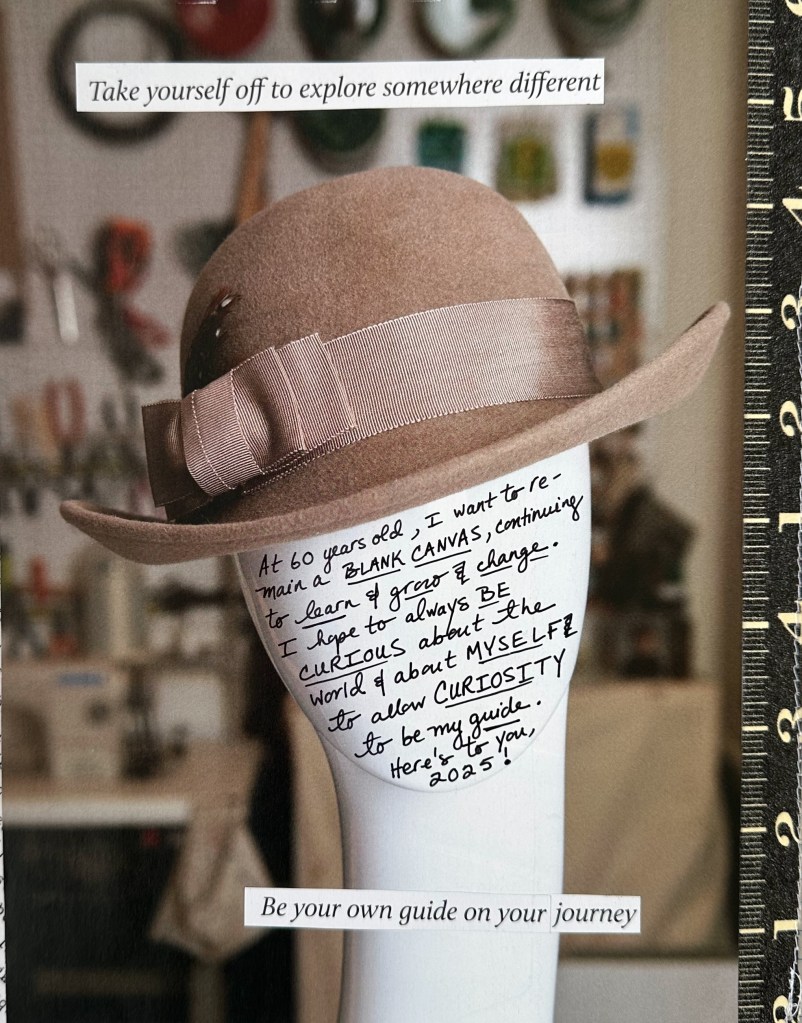 Take yourself off to explore somewhere different
At 60 years old, I want to re-
main a BLANK CANVAS, continuing
to learn & grow & change.
I hope to always BE
CURIOUS about the
world & about MYSELF &
to allow CURIOSITY
to be my guide.
Here's to you,
2025!
Be your own guide on your journey
5
4
1
2
3
2
1